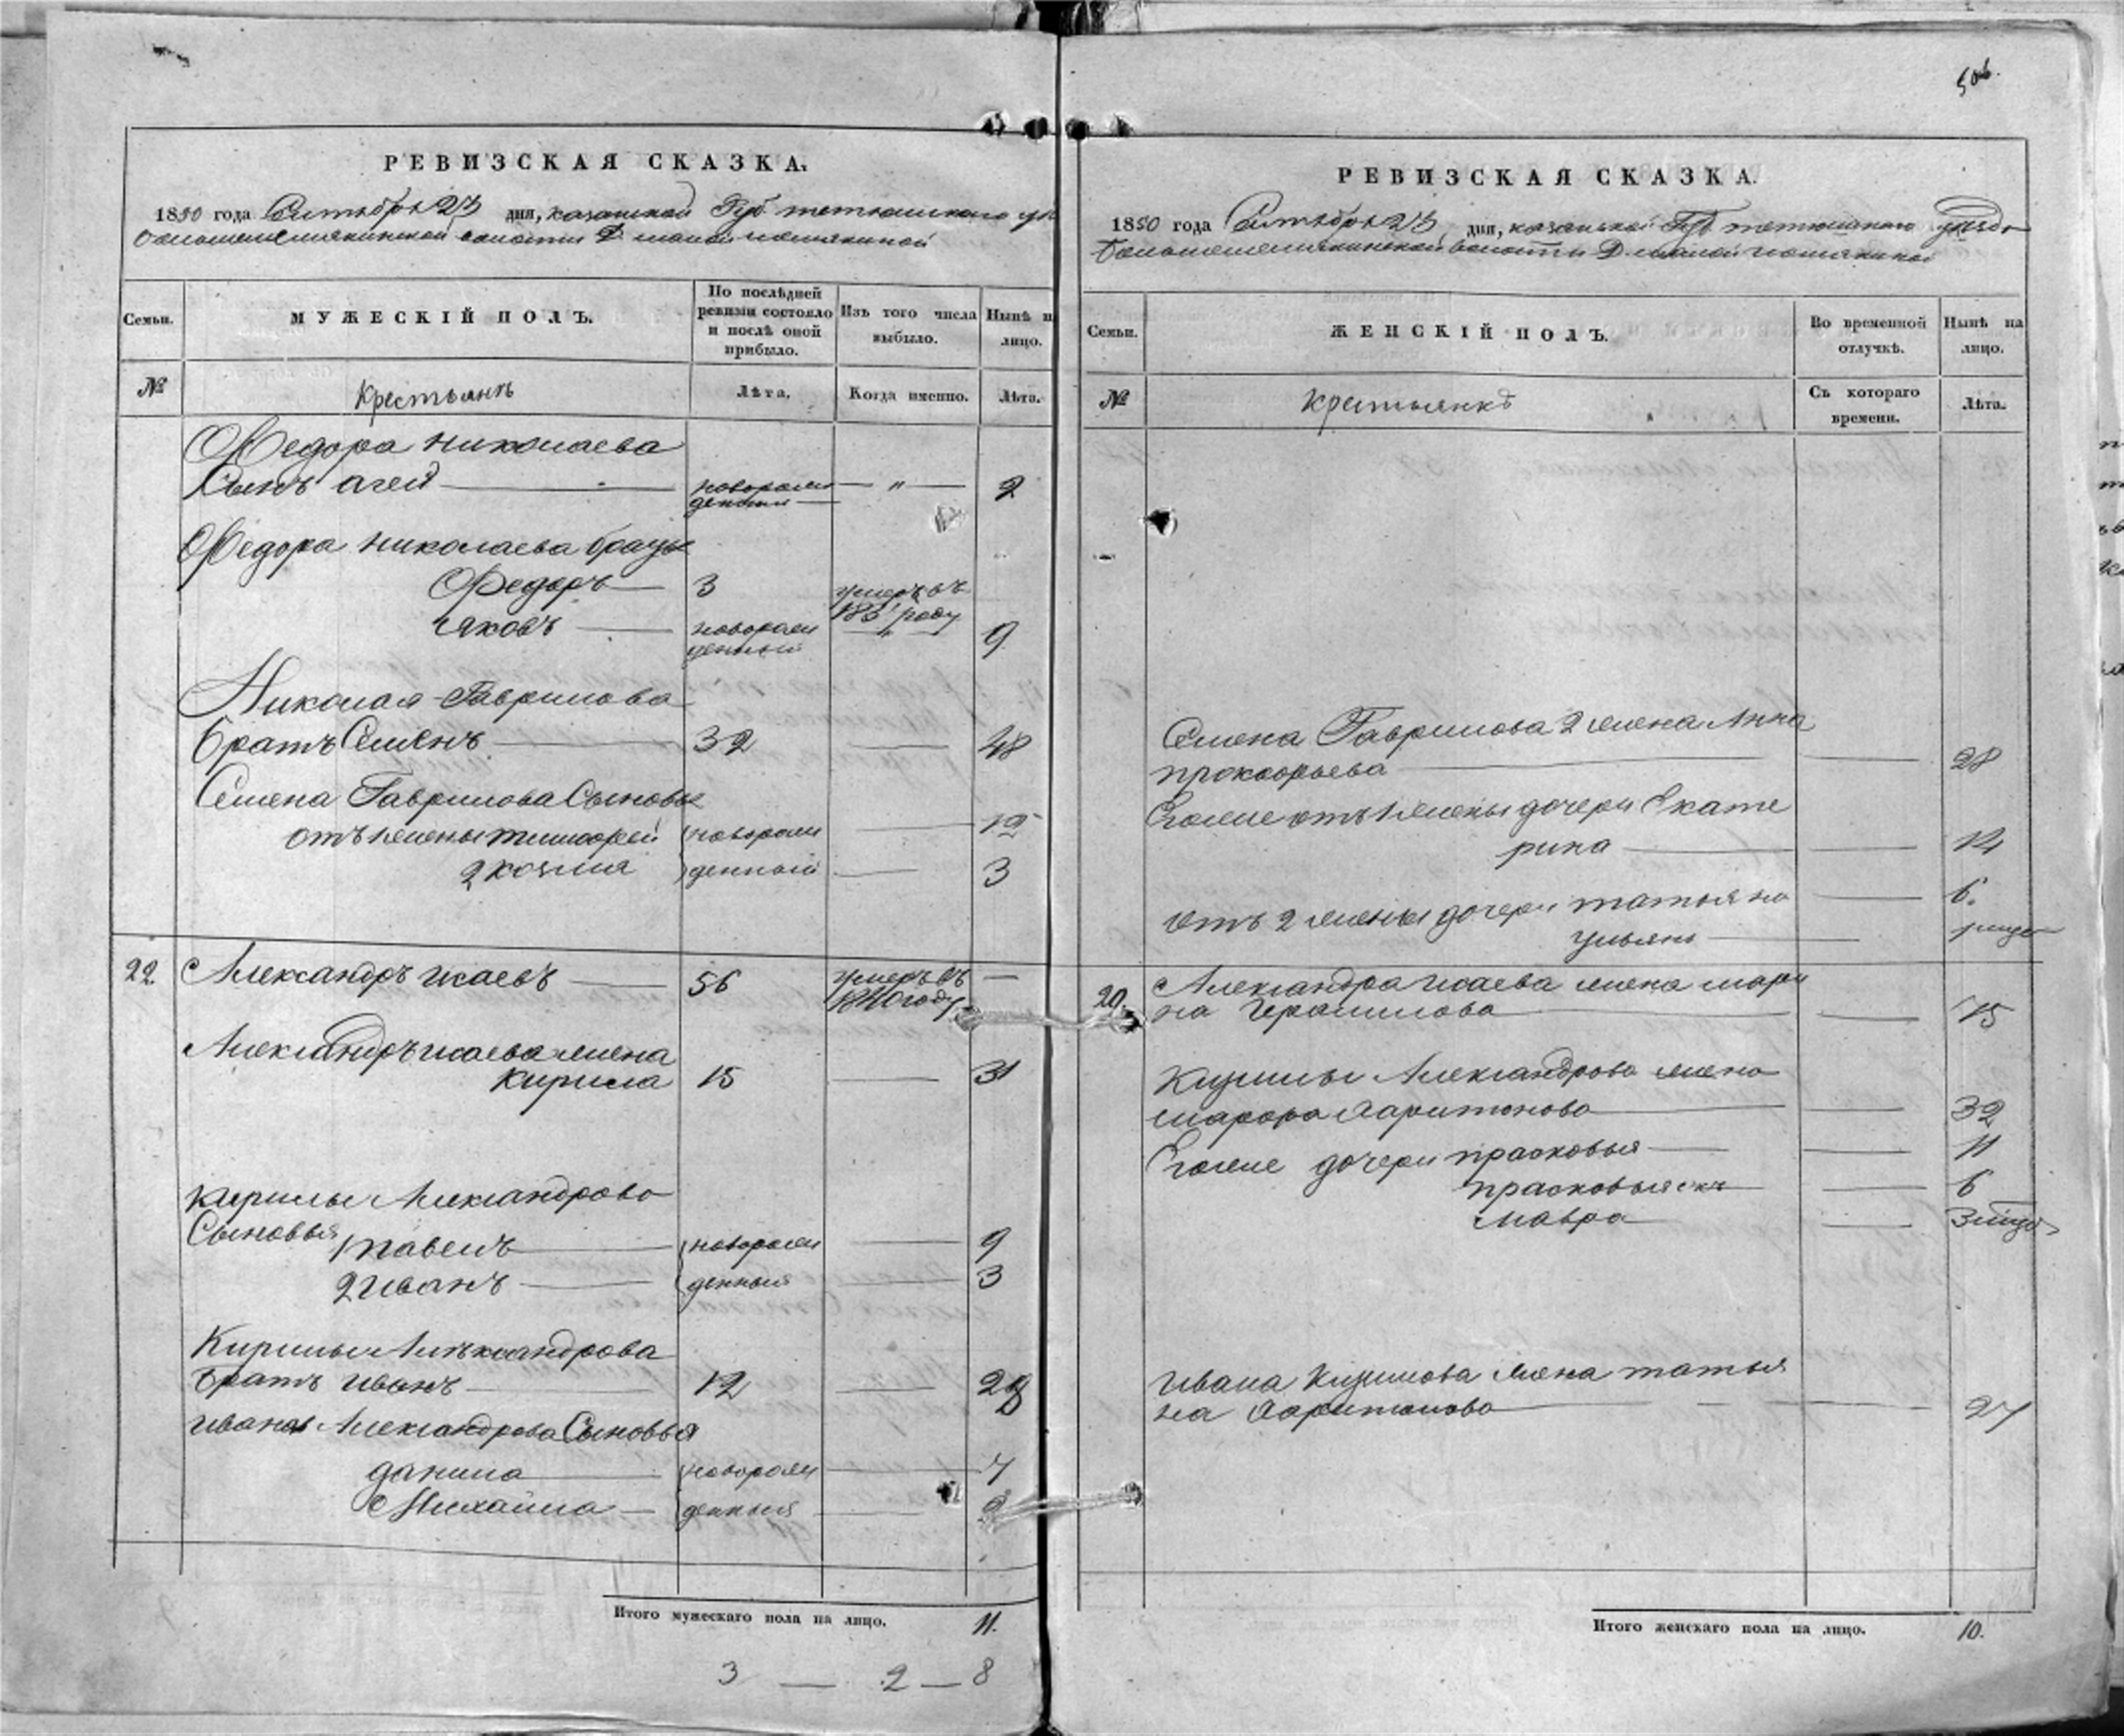 506.
РЕВИЗСКАЯ СКАЗКА.
1850 года Сентября 23 дня, казанской Губ. тетюшскаго
волости Д. малой
Семьи.
МУЖЕСКІЙ ПОЛЪ.
По послѣдней ревизіи состояло и послѣ оной прибыло.
Изъ того числа выбыло.
Нынѣ на лицо.
№
Крестьянъ
Лѣта.
Когда именно.
Лѣта.
Федора николаева
Сынъ агей новорож — " — 2
денный
Федора николаева братья
Федоръ 3 умеръ въ
году
яковъ новорож 9
денный
Николая Гаврилова
братъ Семенъ 32 — 48
Семена Гаврилова Сыновья
отъ 1 жены тимофей новорож —
2 козма денный — 3
22. Александръ исаевъ 56 умеръ въ —
году
Александръ исаева
кирила 15 — 31
кирилы Александрова
Сыновья 1 павелъ новорож — 9
2 иванъ денныя — 3
Кирилы Александрова
братъ иванъ 12 — 28
ивана Александрова Сыновья
данила новорож — 7
Михаила денныя — 2
Итого мужескаго пола на лицо. 11.
3 — 2 — 8
РЕВИЗСКАЯ СКАЗКА.
1850 года Сентября 23 дня, казанской Губ. тетюшскаго уезда
волости Д. малой
Семьи.
ЖЕНСКІЙ ПОЛЪ.
Во временной отлучкѣ.
Нынѣ на лицо.
№
крестьянкъ
Съ котораго времени.
Лѣта.
Семена Гаврилова 2 жена Анна
прокофьева — 28
Егоже отъ 1 жены дочери Екате
рина — 14
отъ 2 жены дочери татьяна — 6.
ульяна
20. Александра исаева жена мари
на —
Кирилы Александрова жена
марфа харитонова — 32
Егоже дочери прасковья — 11
прасковья — 6
мавра —
ивана кирилова жена татья
на харитонова — 27
Итого женскаго пола на лицо. 10.